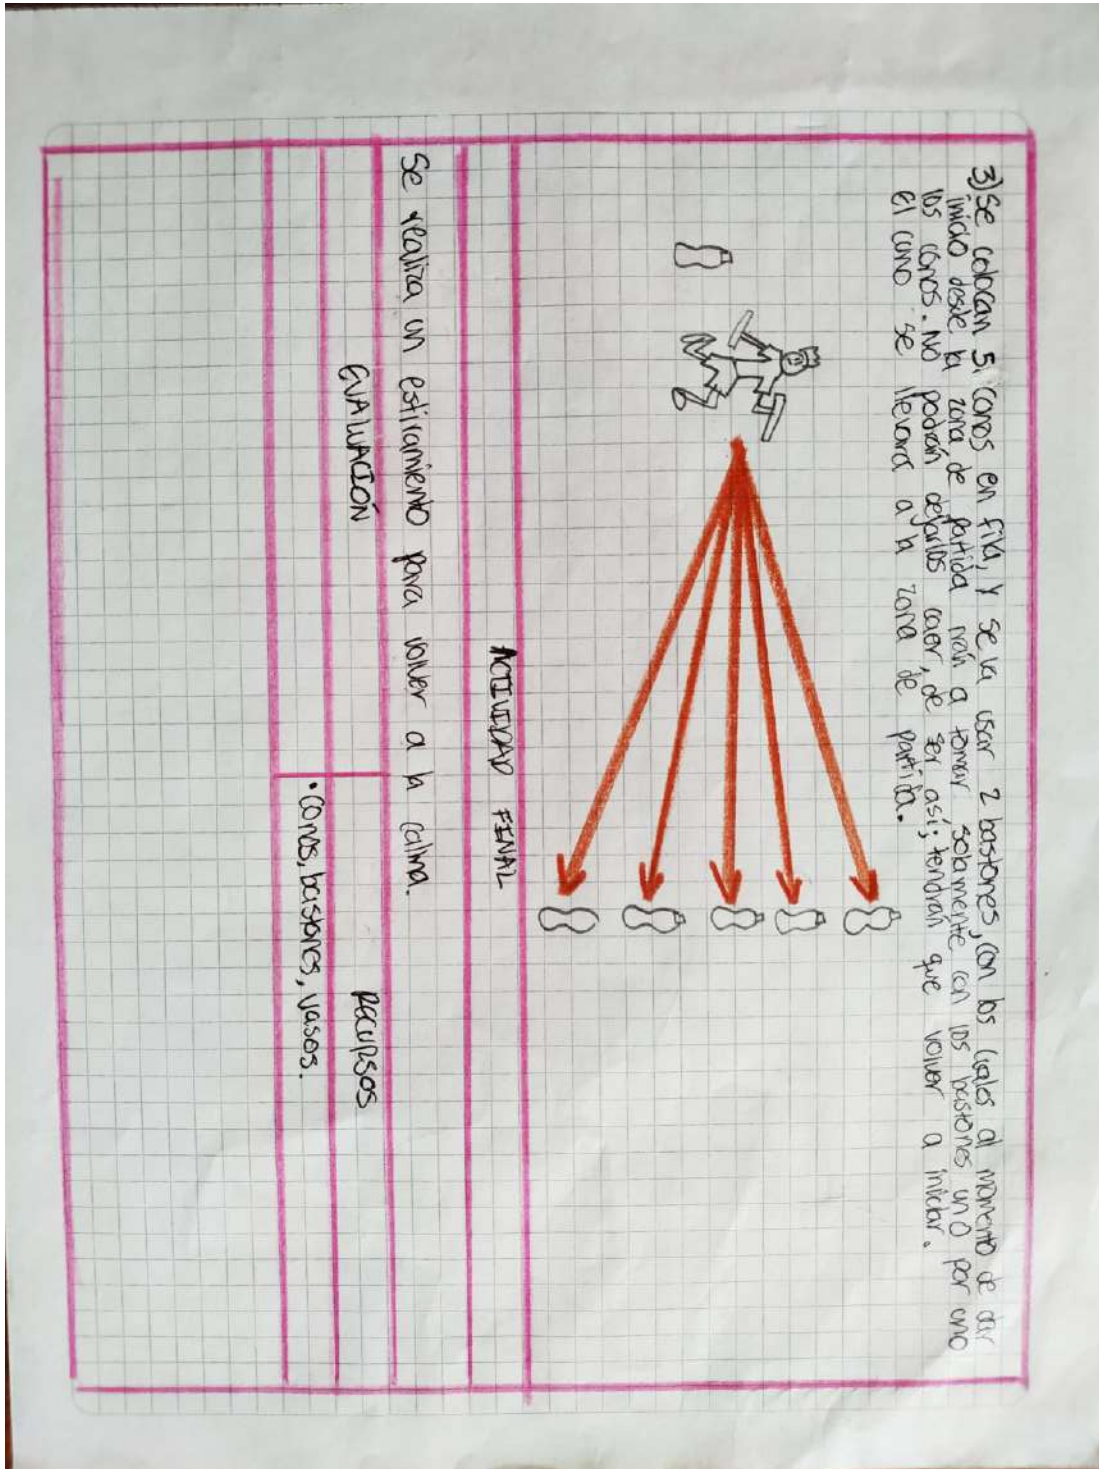 3) Se colocan 5 conos en fila, y se va usar 2 bastones, con los cuales al momento de dar
inicio desde la zona de partida irán a tomar solamente con los bastones uno por uno
los conos. No podrán dejarlos caer, de ser así; tendrán que volver a iniciar.
el cono se llevara a la zona de partida.
ACTIVIDAD FINAL
Se realiza un estiramiento para volver a la calma.
EVALUACIÓN
RECURSOS
• Conos, bastones, vasos.